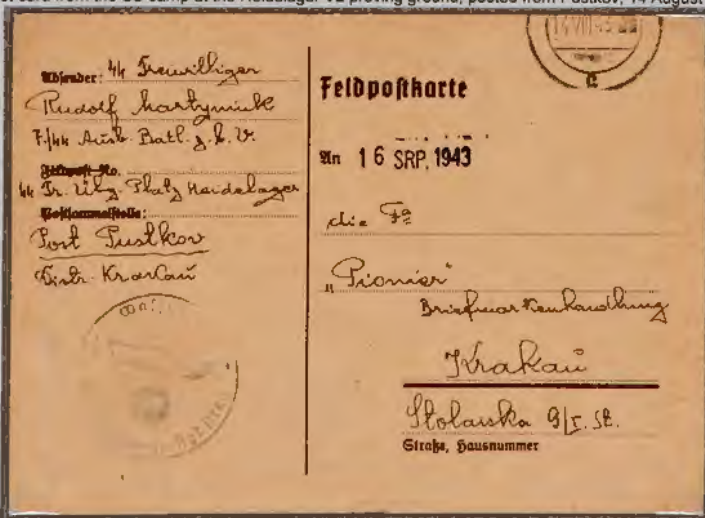 camp at the Heidelager
proving ground, posted from Pustkov, 14 August
14.VIII.43
a
Absender: SS Freiwilliger
Rudolf Martyniuk
7./SS Ausb. Batl. z. b. V.
Feldpost-No.
SS Tr. Übg. Platz Heidelager
Postsammelstelle:
Post Pustkov
Distr. Krakau
Feldpostkarte
An 16 SRP. 1943
die Fa
„Pionier"
Briefmarkenhandlung
Krakau
Stolarska 9/I. St.
Straße, Hausnummer